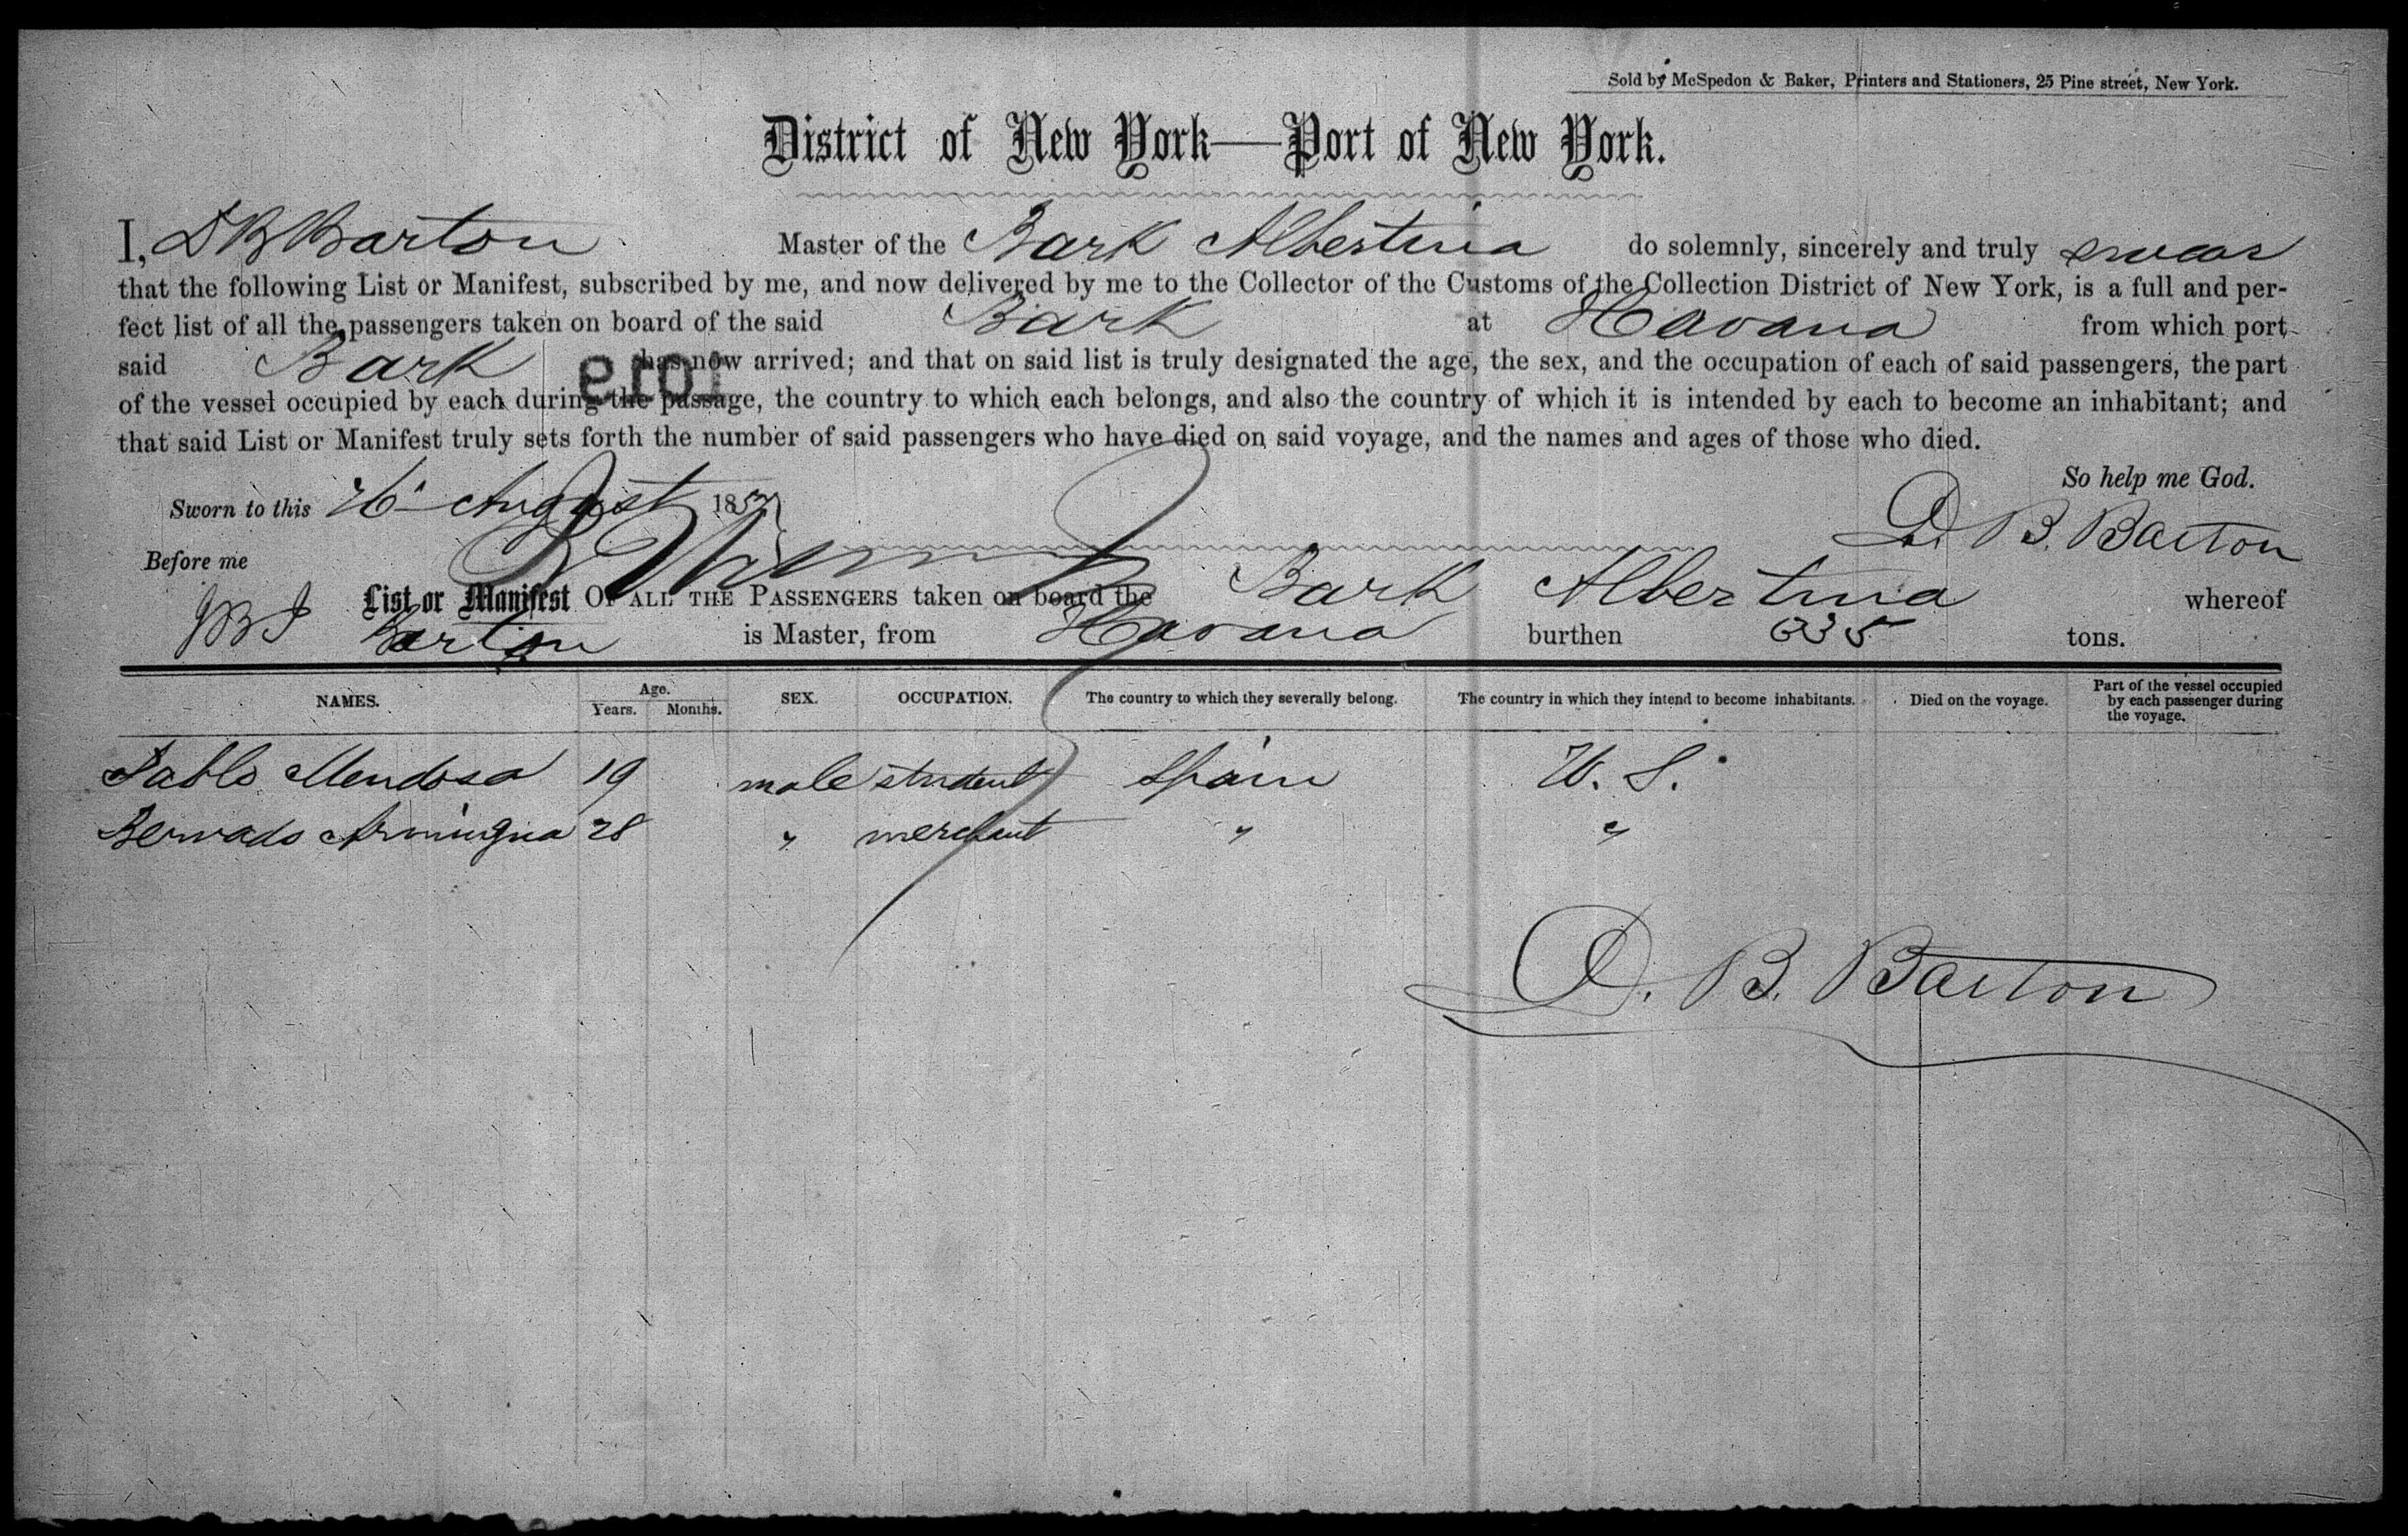 Sold by McSpedon & Baker, Printers and Stationers, 25 Pine street, New York.
District of New York—Port of New York.
I, D B Barton Master of the Bark Albertina do solemnly, sincerely and truly swear
that the following List or Manifest, subscribed by me, and now delivered by me to the Collector of the Customs of the Collection District of New York, is a full and per-
fect list of all the passengers taken on board of the said Bark at Havana from which port
said Bark has now arrived; and that on said list is truly designated the age, the sex, and the occupation of each of said passengers, the part
of the vessel occupied by each during the passage, the country to which each belongs, and also the country of which it is intended by each to become an inhabitant; and
that said List or Manifest truly sets forth the number of said passengers who have died on said voyage, and the names and ages of those who died.
So help me God.
Sworn to this 26 August 185
D. B. Barton
Before me
List or Manifest OF ALL THE PASSENGERS taken on board the Bark Albertina whereof
Barton is Master, from Havana burthen 635 tons.
NAMES. Age. Years. Months. SEX. OCCUPATION. The country to which they severally belong. The country in which they intend to become inhabitants. Died on the voyage. Part of the vessel occupied by each passenger during the voyage.
Pablo Mendosa 19 male student Spain U. S.
Bernado Armingua 28 " merchant " "
D. B. Barton